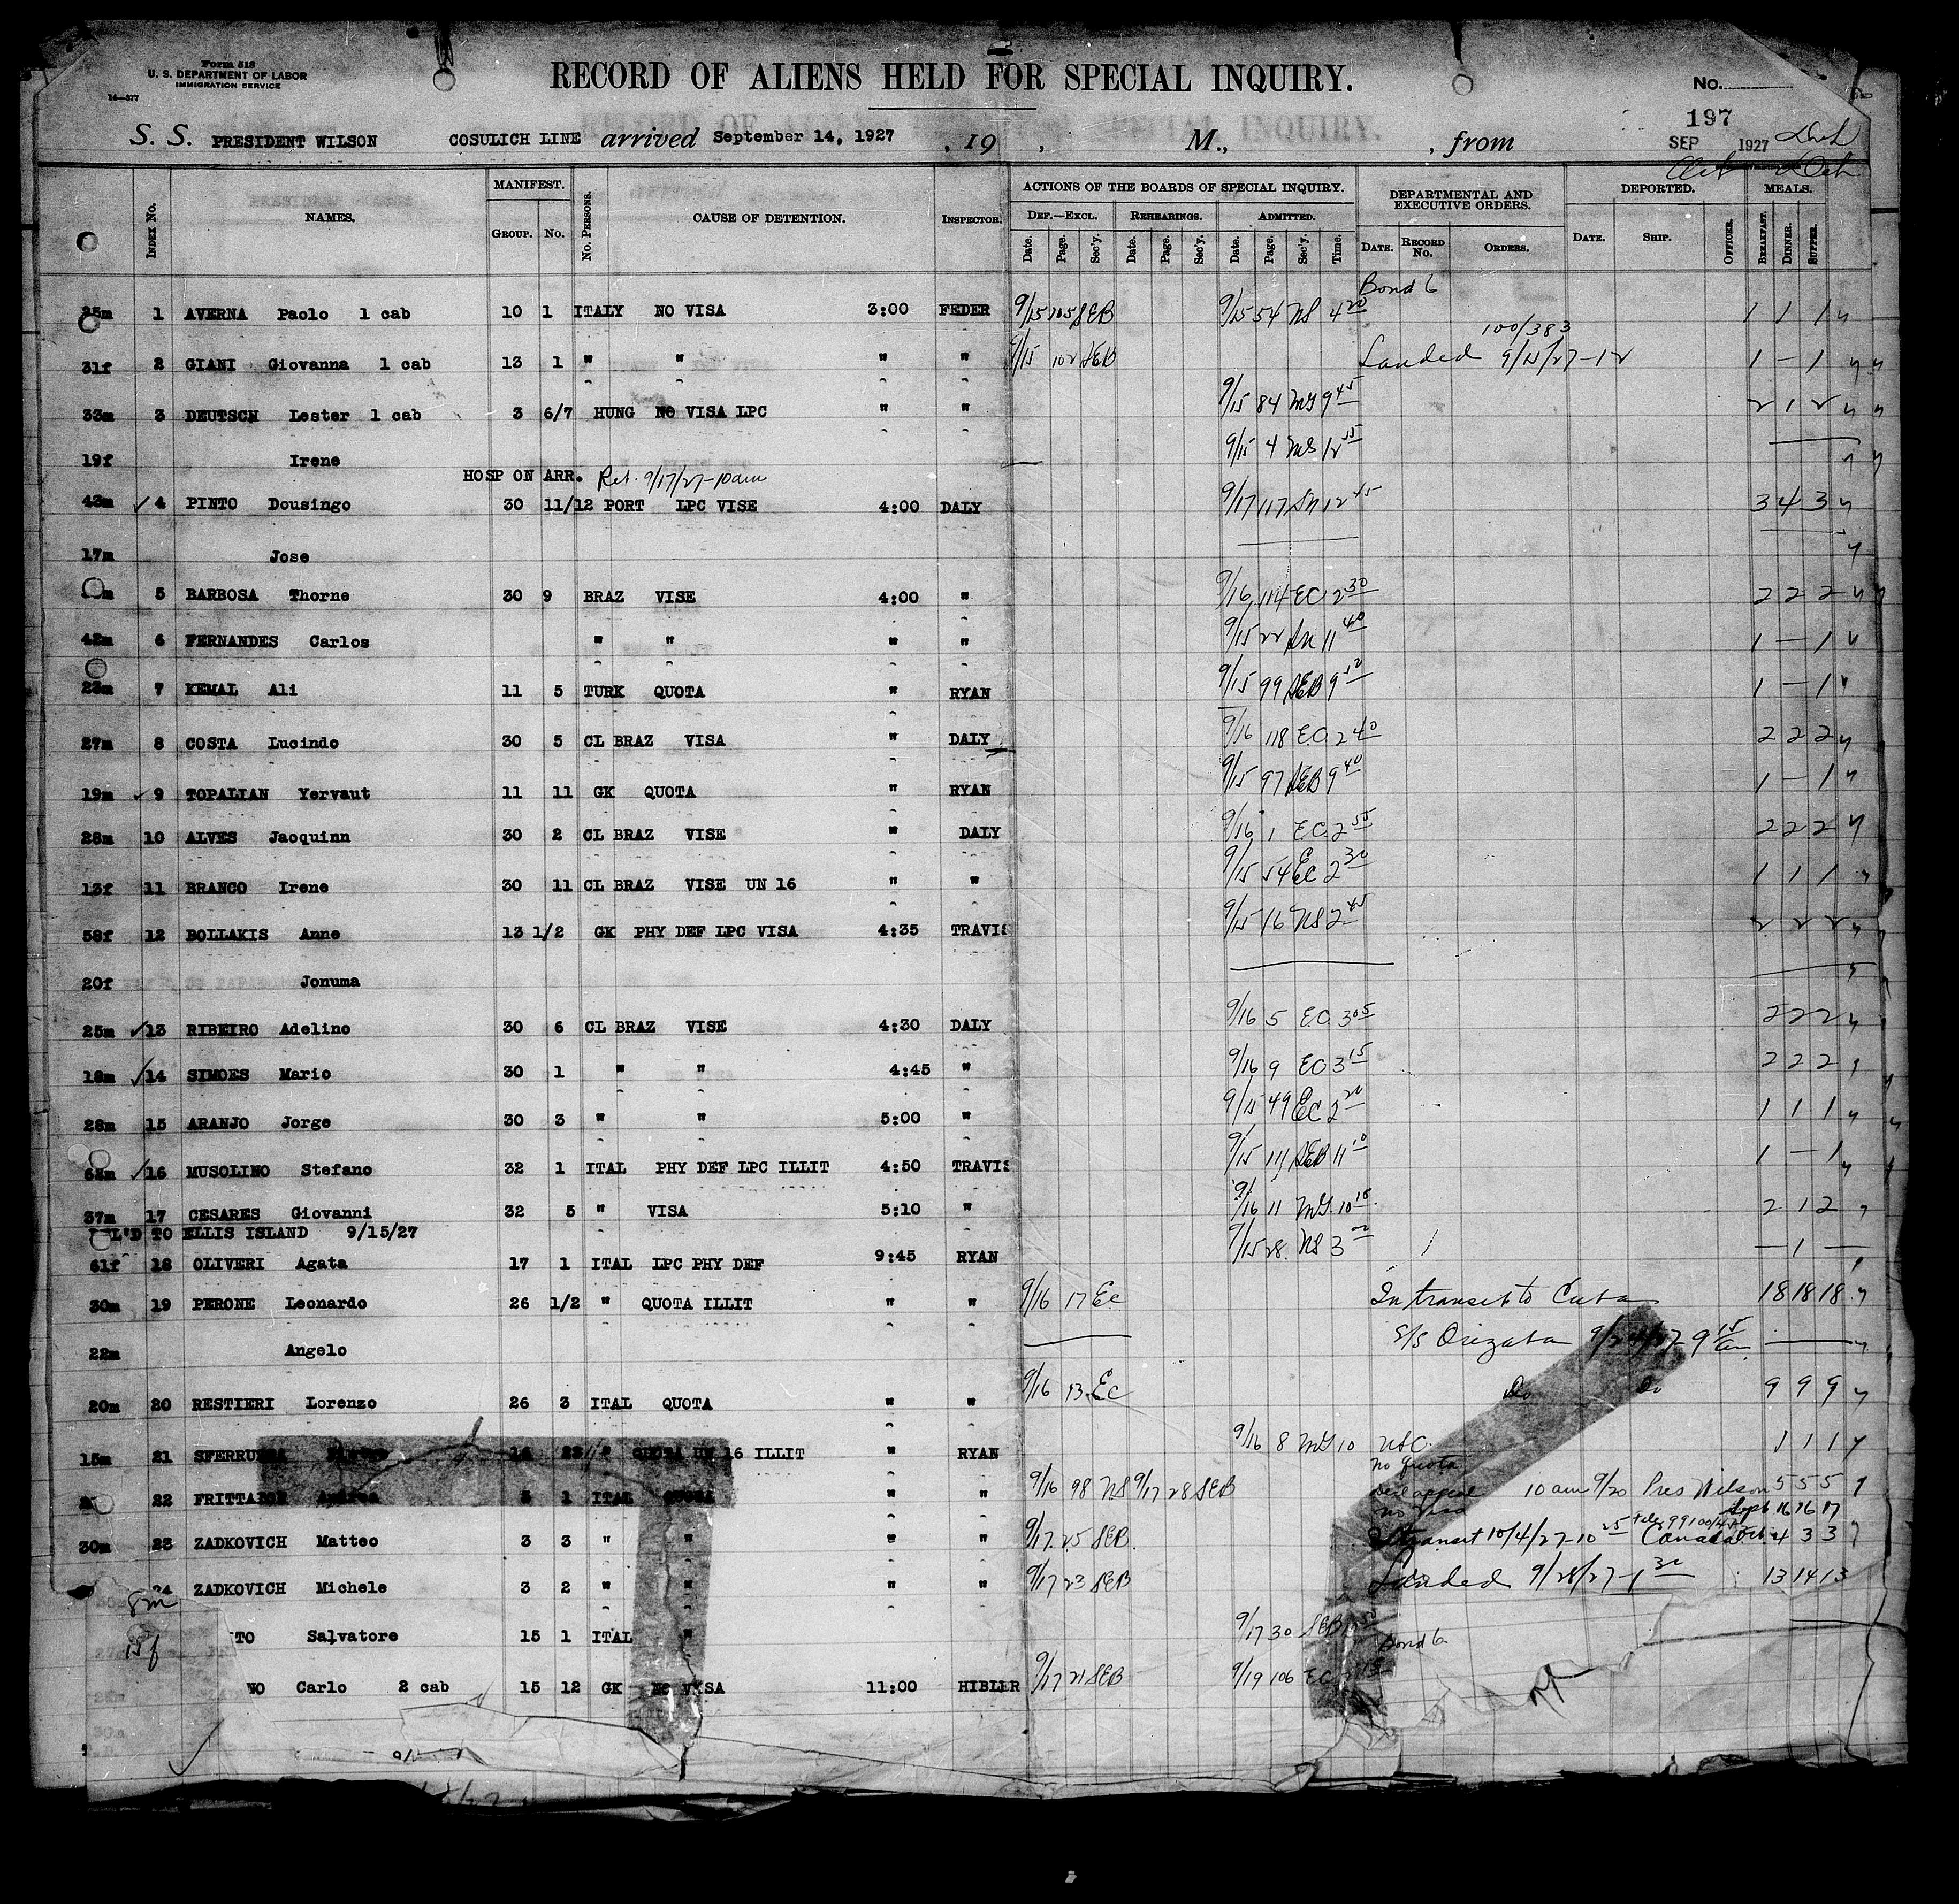 Form 518
U. S. DEPARTMENT OF LABOR
IMMIGRATION SERVICE
14—377
RECORD OF ALIENS HELD FOR SPECIAL INQUIRY.
No.
197
S. S. PRESIDENT WILSON COSULICH LINE arrived September 14, 1927, 19 , M., , from SEP 1927
INDEX No. NAMES. MANIFEST. GROUP. No. No. PERSONS. CAUSE OF DETENTION. INSPECTOR. ACTIONS OF THE BOARDS OF SPECIAL INQUIRY. DEPARTMENTAL AND EXECUTIVE ORDERS. DEPORTED. MEALS.
DEF.—EXCL. REHEARINGS. ADMITTED.
Date. Page. Sec'y. Date. Page. Sec'y. Date. Page. Sec'y. Time. DATE. RECORD No. ORDERS. DATE. SHIP. OFFICER. BREAKFAST. DINNER. SUPPER.
Bond 6
1 AVERNA Paolo 1 cab 10 1 ITALY NO VISA 3:00 FEDER 9/15 105 SEB 9/15 54 NS 4 20 1 1 1
100/383
31f 2 GIANI Giovanna 1 cab 13 1 " " " " 9/15 102 SEB Landed 9/15/27-12 1 — 1
33m 3 DEUTSCH Lester 1 cab 3 6/7 HUNG NO VISA LPC " " 9/15 84 MG 9 45 2 1 2
19f Irene 9/15 4 MS 12 15
HOSP ON ARR. Ret. 9/17/27-10am
43m 4 PINTO Dousingo 30 11/12 PORT LPC VISE 4:00 DALY 9/17 117 SN 12 45 3 4 3
17m Jose
5 BARBOSA Thorne 30 9 BRAZ VISE 4:00 " 9/16 114 EC 2 30 2 2 2
42m 6 FERNANDES Carlos " " " " 9/15 22 SN 11 40 1 — 1
23m 7 KEMAL Ali 11 5 TURK QUOTA " RYAN 9/15 99 SEB 9 50 1 — 1
27m 8 COSTA Lucindo 30 5 CL BRAZ VISA " DALY 9/16 118 EC 2 40 2 2 2
19m 9 TOPALIAN Yervaut 11 11 GK QUOTA " RYAN 9/15 97 SEB 9 40 1 — 1
28m 10 ALVES Jacquinn 30 2 CL BRAZ VISE " DALY 9/16 1 EC 2 55 2 2 2
13f 11 BRANCO Irene 30 11 CL BRAZ VISE UN 16 " " 9/15 54 EC 2 30 1 1 1
58f 12 BOLLAKIS Anne 13 1/2 GK PHY DEF LPC VISA 4:35 TRAVIS 9/15 16 NS 2 45 2 2 2
20f Jonuma
25m 13 RIBEIRO Adelino 30 6 CL BRAZ VISE 4:30 DALY 9/16 5 EC 3 05 2 2 2
18m 14 SIMOES Mario 30 1 " " 4:45 " 9/16 9 EC 3 15 2 2 2
28m 15 ARANJO Jorge 30 3 " " 5:00 " 9/15 49 EC 2 20 1 1 1
62m 16 MUSOLINO Stefano 32 1 ITAL PHY DEF LPC ILLIT 4:50 TRAVIS 9/15 111 SEB 11 10 1 — 1
37m 17 CESARES Giovanni 32 5 " VISA 5:10 " 9/16 11 MG 10 15 2 1 2
TO ELLIS ISLAND 9/15/27
61f 18 OLIVERI Agata 17 1 ITAL LPC PHY DEF 9:45 RYAN 9/15 28 NS 3 00 — 1 —
30m 19 PERONE Leonardo 26 1/2 " QUOTA ILLIT " " 9/16 17 EC In transit to Cuba 18 18 18
22m Angelo S/S Orizaba 9 15 am
20m 20 RESTIERI Lorenzo 26 3 ITAL QUOTA " " 9/16 13 EC Do Do 9 9 9
15m 21 16 ILLIT " RYAN 9/16 8 MG 10 USC 1 1 1
No quota
22 1 ITAL QUOTA " " 9/16 98 NS 9/17 28 SEB 10 am 9/20 Pres Wilson 5 5 5
no visa Sept 16 16 17
30m 23 ZADKOVICH Matteo 3 3 " " " " 9/17 25 SEB In transit 10/4/27-10 25 Canada Oct 4 3 3
24 ZADKOVICH Michele 3 2 " " " " 9/17 23 SEB Landed 9/28/27-1 30 13 14 13
8m
15f TO Salvatore 15 1 ITAL " 9/17 30 SEB
Bond 6
NO Carlo 2 cab 15 12 GK NO VISA 11:00 HIBLER 9/17 21 SEB 9/19 106 EC